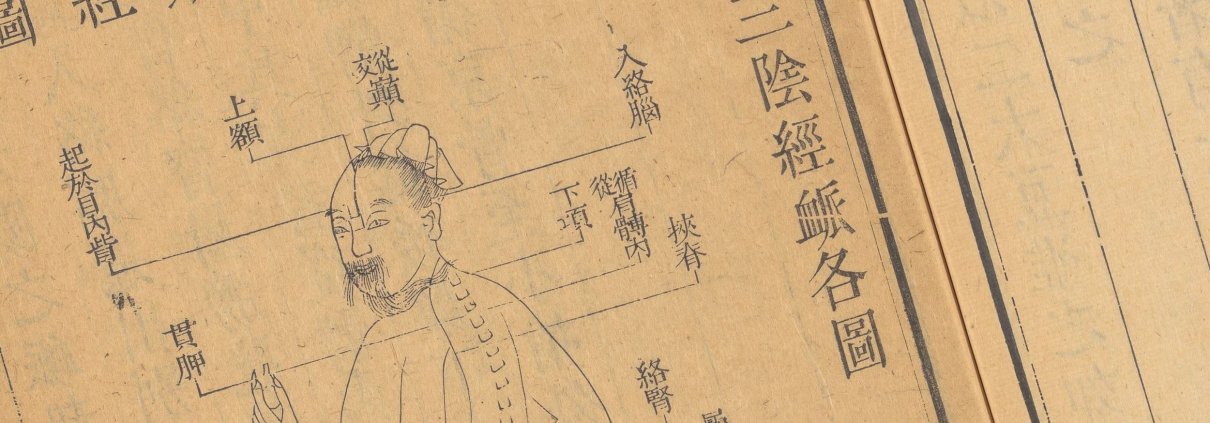 三陰經䘑各圖
經
圖
入絡腦
從巔
交
上額
起於目內眥
下項
循肩髆內
從
挾脊
貫胛
絡腎